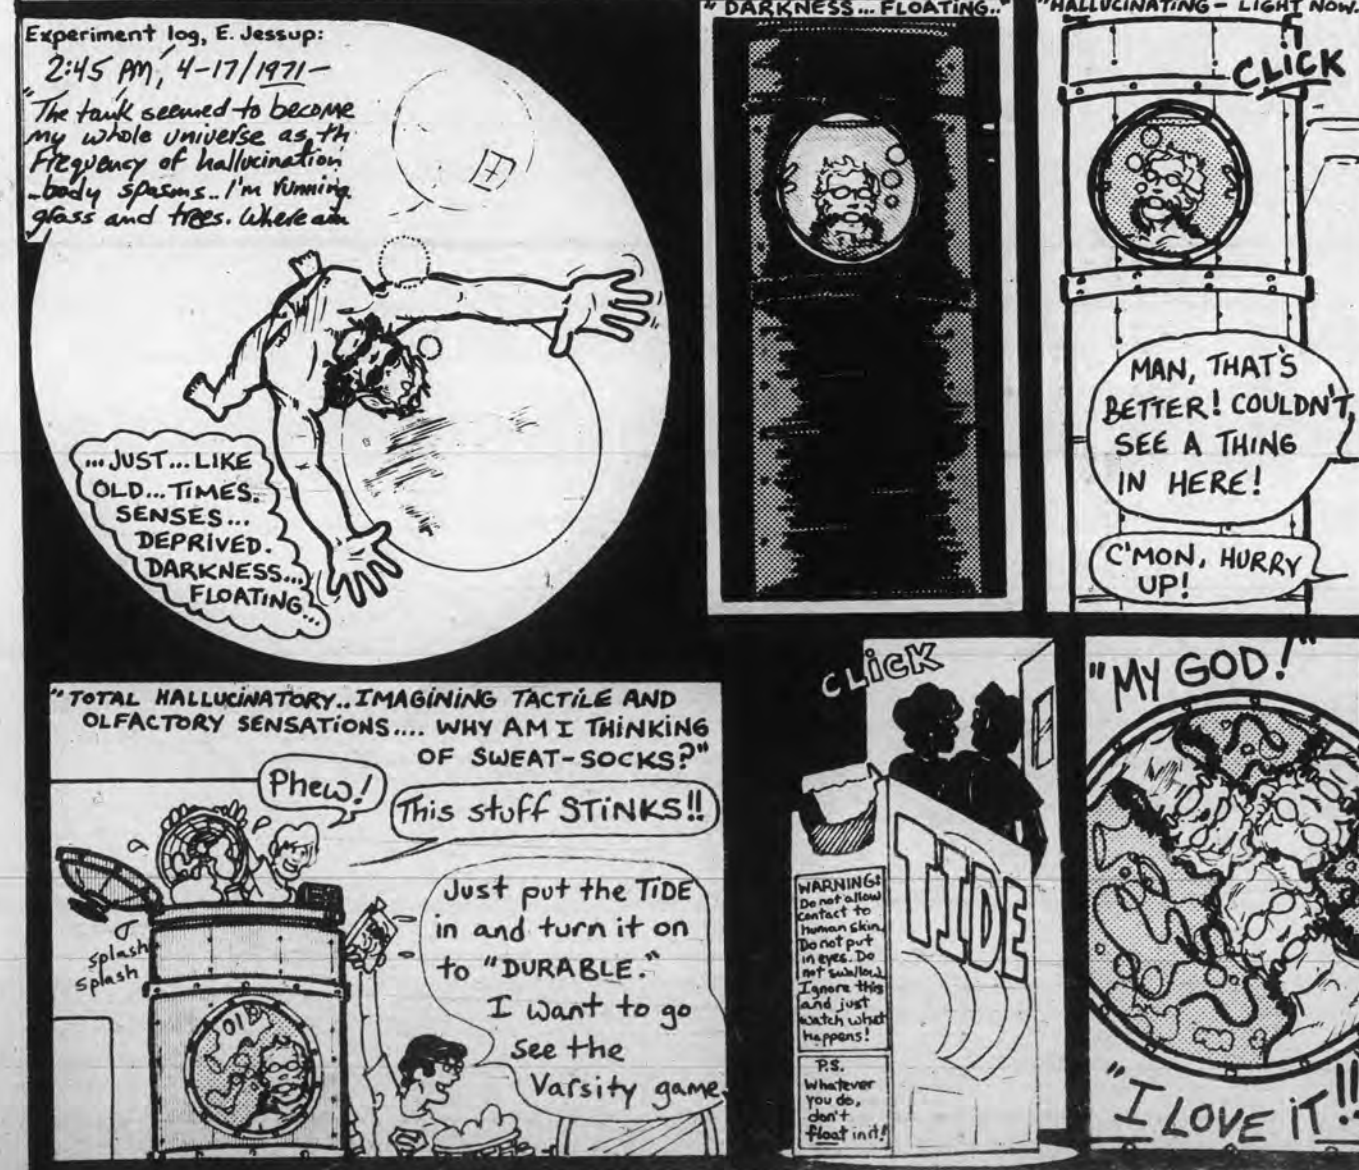 Experiment log, E. Jessup:
2:45 PM, 4-17/1971-
"The tank seemed to become
my whole universe as th
Frequency of hallucination
-body spasms.. I'm running.
grass and trees. Where am
...JUST...LIKE
OLD...TIMES.
SENSES...
DEPRIVED.
DARKNESS...
FLOATING...
"DARKNESS... FLOATING.."
"HALLUCINATING - LIGHT NOW.
CLICK
MAN, THAT'S
BETTER! COULDN'T
SEE A THING
IN HERE!
C'MON, HURRY
UP!
"TOTAL HALLUCINATORY.. IMAGINING TACTILE AND
OLFACTORY SENSATIONS.... WHY AM I THINKING
OF SWEAT-SOCKS?"
Phew!
This stuff STINKS!!
splash
splash
Just put the TIDE
in and turn it on
to "DURABLE."
I want to go
see the
Varsity game.
CLICK
TIDE
WARNING:
Do not allow
contact to
human skin.
Do not put
in eyes. Do
not swallow.
Ignore this
and just
watch what
happens!
P.S.
Whatever
you do,
don't
float in it!
"MY GOD!"
"I LOVE IT!!